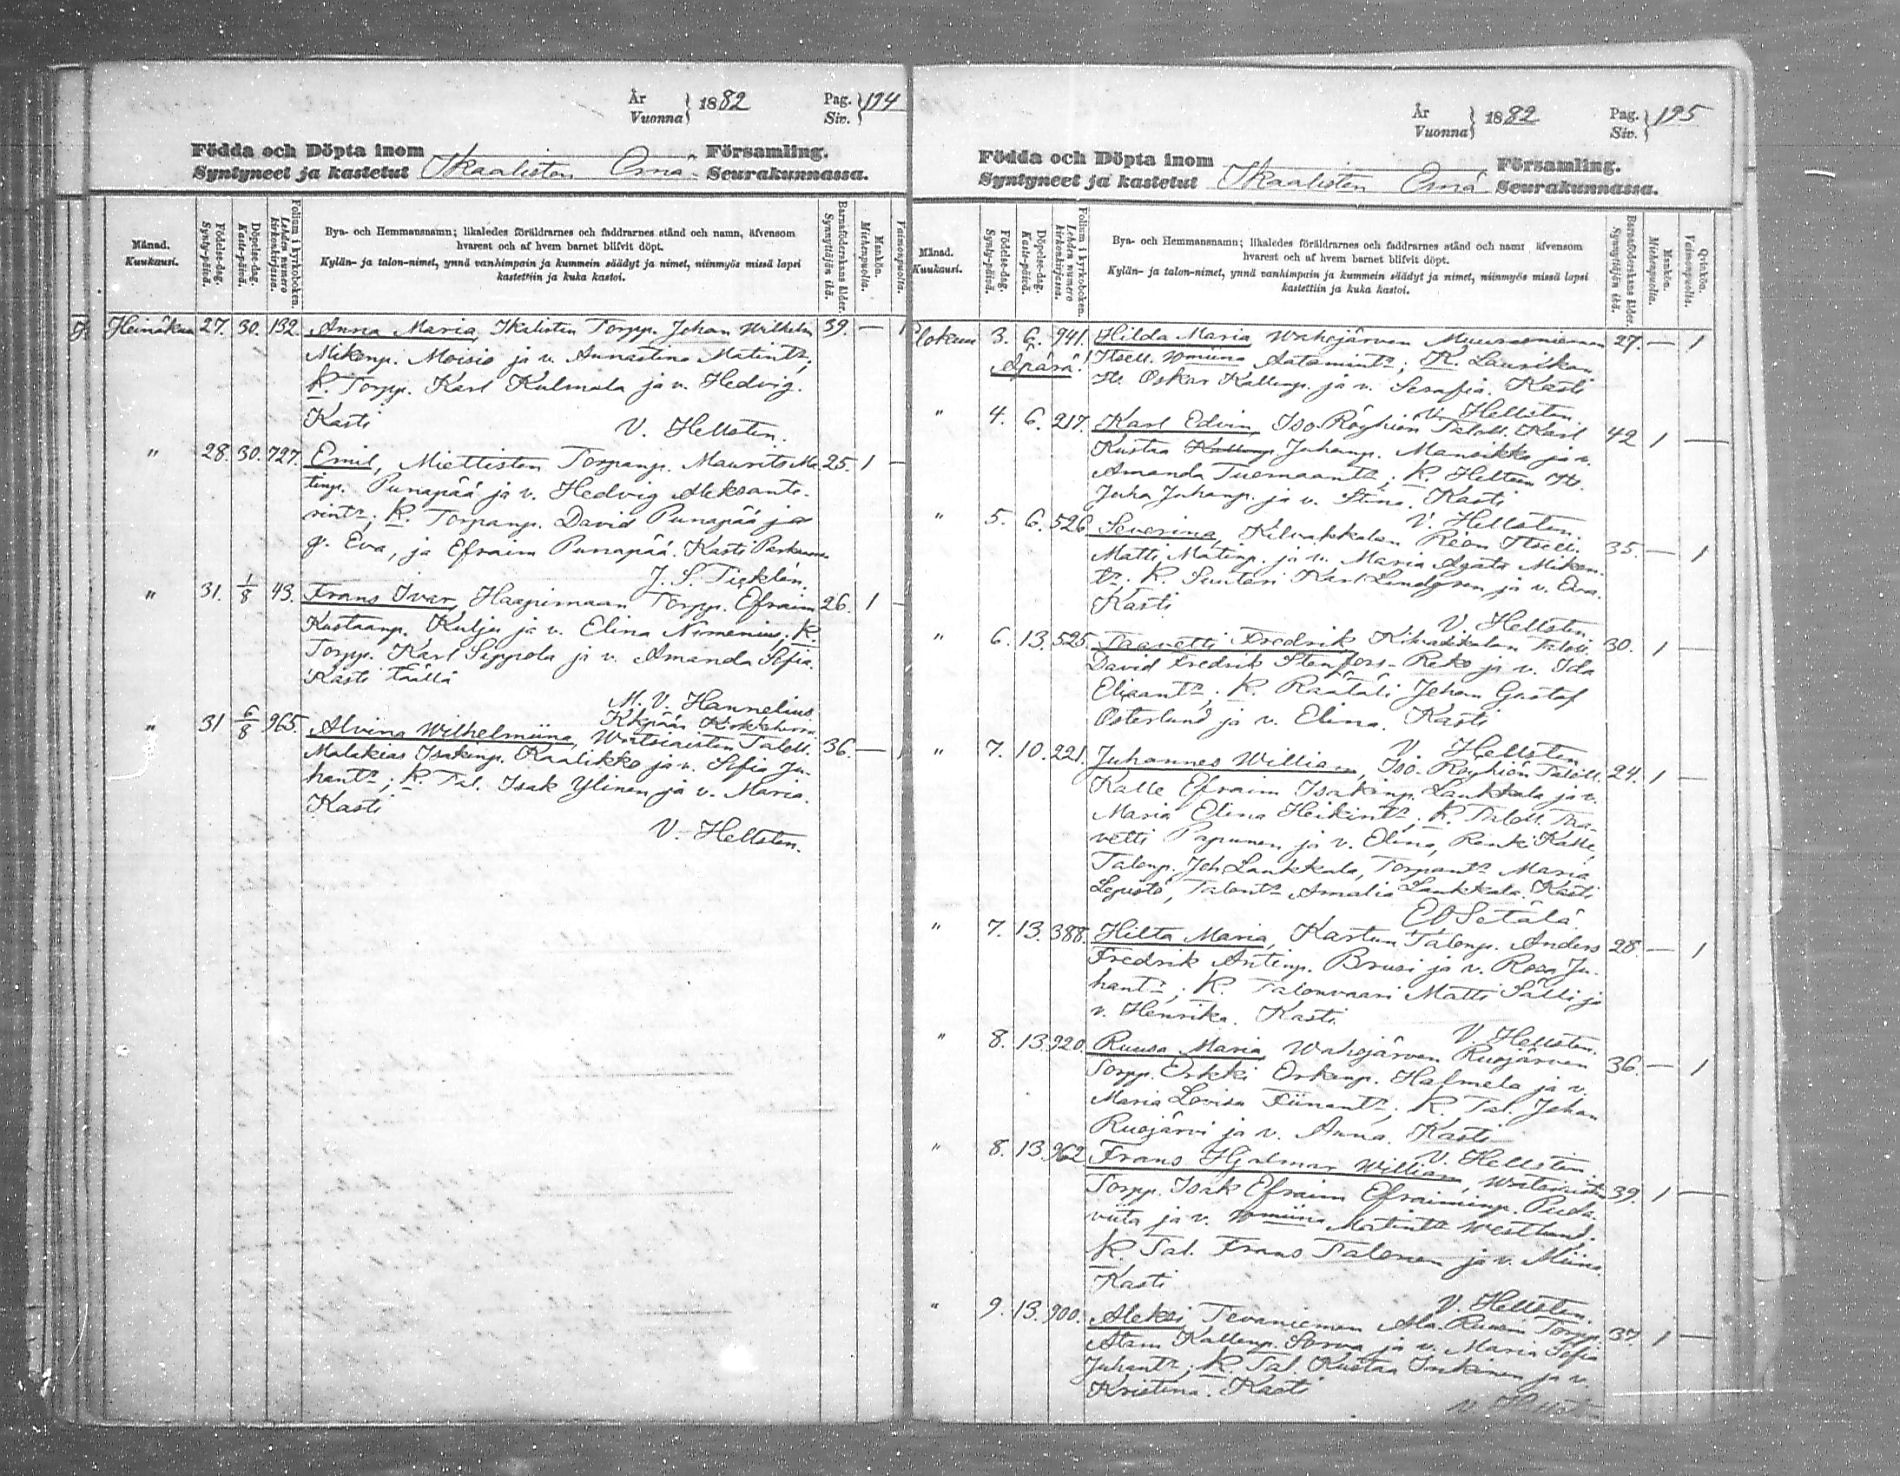 År
Vuonna } 1882
Pag.
Siv. } 194
Födda och Döpta inom Församling.
Syntyneet ja kastetut Ikaalisten Emä- Seurakunnassa.
Månad.
Kuukausi.
Födelse-dag.
Synty-päivä.
Döpelse-dag.
Kaste-päivä.
Folium i kyrkoboken.
Lehden numero kirkonkirjassa.
Bya- och Hemmansnamn; likaledes föräldrarnes och faddrarnes stånd och namn, äfvensom
hvarest och af hvem barnet blifvit döpt.
Kylän- ja talon-nimet, ynnä vanhimpain ja kummein säädyt ja nimet, niinmyös missä lapsi
kastettiin ja kuka kastoi.
Barnaföderskans ålder.
Synnyttäjän ikä.
Mankön.
Miehenpuolia.
Vaimonpuolia.
Heinäkuu 27. 30. 132. Anna Maria, Ikalisten Torpp. Johan Wilhelm 39. — 1
Mikenp. Moisio ja v. Annastina Matint:;
K. Torpp. Karl Kulmala ja v. Hedvig.
Kasti V. Hellsten.
" 28. 30. 727. Emil, Miettisten Torpanp. Maurits Ma- 25. 1 —
tinp. Punapää ja v. Hedvig Aleksante-
rint:; K. Torpanp. David Punapää ja
Eva, ja Efraim Punapää. Kasti
" 31. 1/8 43. Frans Ivar, Haapimaan Torpp. Efraim 26. 1 —
Kustaanp. Kulju ja v. Elina Numenius; K.
Torpp. Karl Seppola ja v. Amanda Sofia.
Kasti täällä
M. V. Hannelius.
" 31 6/8 965. Alvina Wilhelmiina, Taloll. 36. —
Malakias Isakinp. Kaalikko ja v. Sofia Ju-
hant:; K. Tal. Isak Ylinen ja v. Maria.
Kasti
V. Hellsten.
År
Vuonna } 1882
Pag.
Siv. } 195
Födda och Döpta inom Församling.
Syntyneet ja kastetut Ikaalisten Emä Seurakunnassa.
Månad.
Kuukausi.
Födelse-dag.
Synty-päivä.
Döpelse-dag.
Kaste-päivä.
Folium i kyrkoboken.
Lehden numero kirkonkirjassa.
Bya- och Hemmansnamn; likaledes föräldrarnes och faddrarnes stånd och namn äfvensom
hvarest och af hvem barnet blifvit döpt.
Kylän- ja talon-nimet, ynnä vanhimpain ja kummein säädyt ja nimet, niinmyös missä lapsi
kastettiin ja kuka kastoi.
Barnaföderskans ålder.
Synnyttäjän ikä.
Mankön.
Miehenpuolia.
Qvinkön.
Vaimonpuolia.
Elokuu 3. 6. 941. Hilda Maria Wahojärven 27. — 1
Äpärä! Itsell. Wmiina Aatamint:; K. Laurikan
It. Oskar Kallenp. ja v. Serafia. Kasti
V. Hellsten
" 4. 6. 217. Karl Edvin, Iso-Röyhiön Taloll. Karl 42 1 —
Kustaa Juhanp. Mansikka ja v.
Amanda Tuomaant:; K. It.
Juha Juhanp. ja v. Stina. Kasti
V. Hellsten.
" 5. 6. 526. Severina, Kilvakkalan Itsell. 35. — 1
Matti Matinp. ja v. Maria Agata Miken-
t:. K. Suutari Karl Lindgren ja v. Eva.
Kasti
V. Hellsten.
" 6. 13. 525. Taavetti Fredrik Kilvakkalan Taloll. 30. 1 —
David Fredrik Stenfors-Reko ja v. Ida
K. Räätäli Johan Gustaf
Österlund ja v. Elina. Kasti
V. Hellsten
" 7. 10. 221. Juhannes William, Iso-Röyhiön Taloll. 24. 1 —
Kalle Efraim Isakinp. Laukkala ja v.
Maria Elina Heikint:; K. Taloll. Taa-
vetti Papunen ja v. Elina, Renki Kalle,
Talonp. Joh Laukkala, Torpant: Maria
Lepistö, Talont: Amalia Laukkala. Kasti
E O Setälä.
" 7. 13. 388. Hilta Maria, Kartun Talonp. Anders 28. — 1
Fredrik Antinp. Brusi ja v. Rosa Ju-
hant:; K. Talonvaari Matti Sälli ja
v. Henrika. Kasti
V. Hellsten.
" 8. 13. 920. Ruusa Maria Wahojärven Ruojärven 36. — 1
Torpp. Erkki Erkinp. Halmela ja v.
Maria Lovisa K. Tal. Johan
Ruojärvi ja v. Anna. Kasti
V. Hellsten.
" 8. 13. 962 Frans Hjalmar William, 39. 1 —
Torpp. Isak Efraim Efraiminp.
viita ja v. Wmiina Matint: Westlund.
K. Tal. Frans Talonen ja v. Miina.
Kasti
V. Hellsten.
" 9. 13. 900. Aleksi, Tevaniemen Ala-Ruusin Torpp. 37. 1 —
Atam Kallenp. Sorva ja v. Maria Sofia
Juhant:; K. Tal. Kustaa Inkinen ja v.
Kristina. Kasti